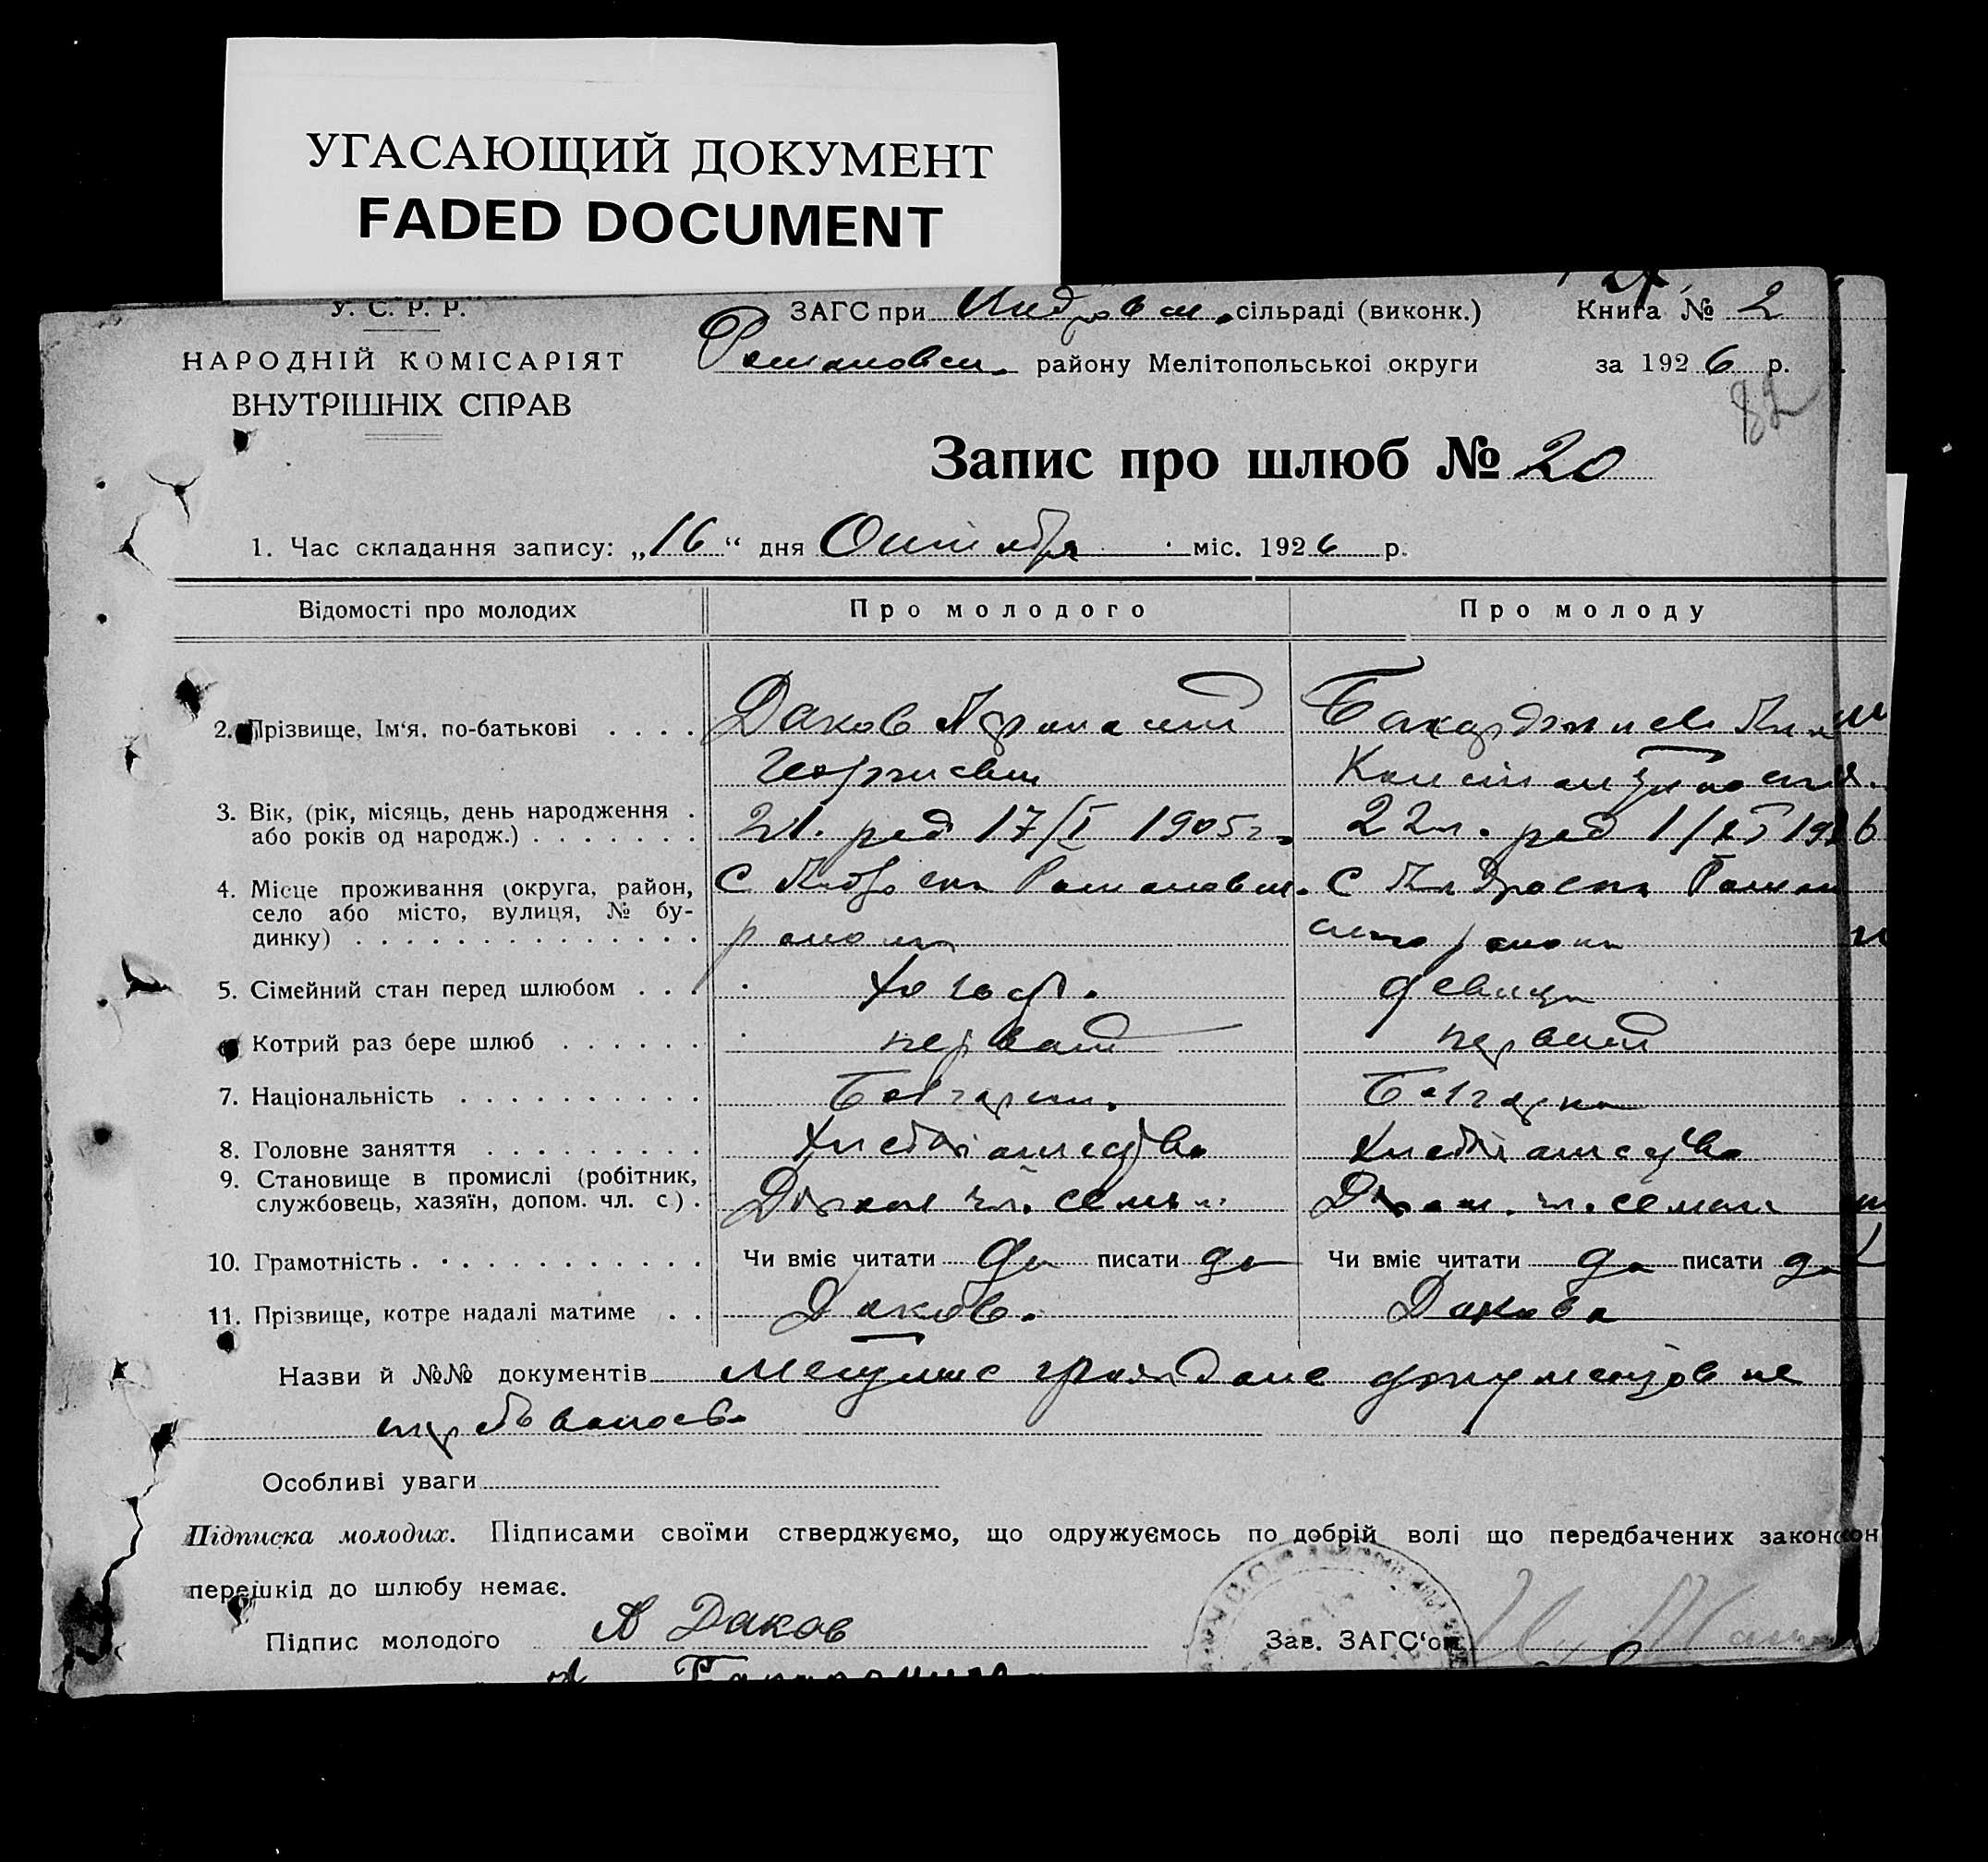 УГАСАЮЩИЙ ДОКУМЕНТ
FADED DOCUMENT
У. С. Р. Р.
НАРОДНІЙ КОМІСАРІЯТ
ВНУТРІШНІХ СПРАВ
ЗАГС при сільраді (виконк.)
Романовск. району Мелітопольської округи
Книга № 2
за 1926 р.
82
Запис про шлюб № 20
1. Час складання запису: „16“ дня Октября міс. 1926 р.
Відомості про молодих Про молодого Про молоду
2. Прізвище, Ім‘я, по-батькові . . . . Даков Афанасий
Георгиевич Константиновна
3. Вік, (рік, місяць, день народження . 21. род 17/I 1905 г. 22 л. род
або років од народж.) . . . . . . .
4. Місце проживання (округа, район, с Романовск. с
село або місто, вулиця, № бу-
динку) . . . . . . . . . . . . . . района ского района
5. Сімейний стан перед шлюбом . . . холост. девица
Котрий раз бере шлюб . . . . . . первый первый
7. Національність . . . . . . . . . . Болгарин. Болгарка
8. Головне заняття . . . . . . . . . Хлебопашество Хлебопашество
9. Становище в промислі (робітник,
службовець, хазяїн, допом. чл. с) . Допом чл. семьи Допом. чл. семьи
10. Грамотність . . . . . . . . . . . . Чи вміє читати да писати да Чи вміє читати да писати да
11. Прізвище, котре надалі матиме . . Даков. Дакова
Назви й №№ документів местные граждане документов не
требовалось
Особливі уваги
Підписка молодих. Підписами своїми стверджуємо, що одружуємось по добрій волі що передбачених законом
перешкід до шлюбу немає.
Підпис молодого А Даков Зав. ЗАГС‘ом